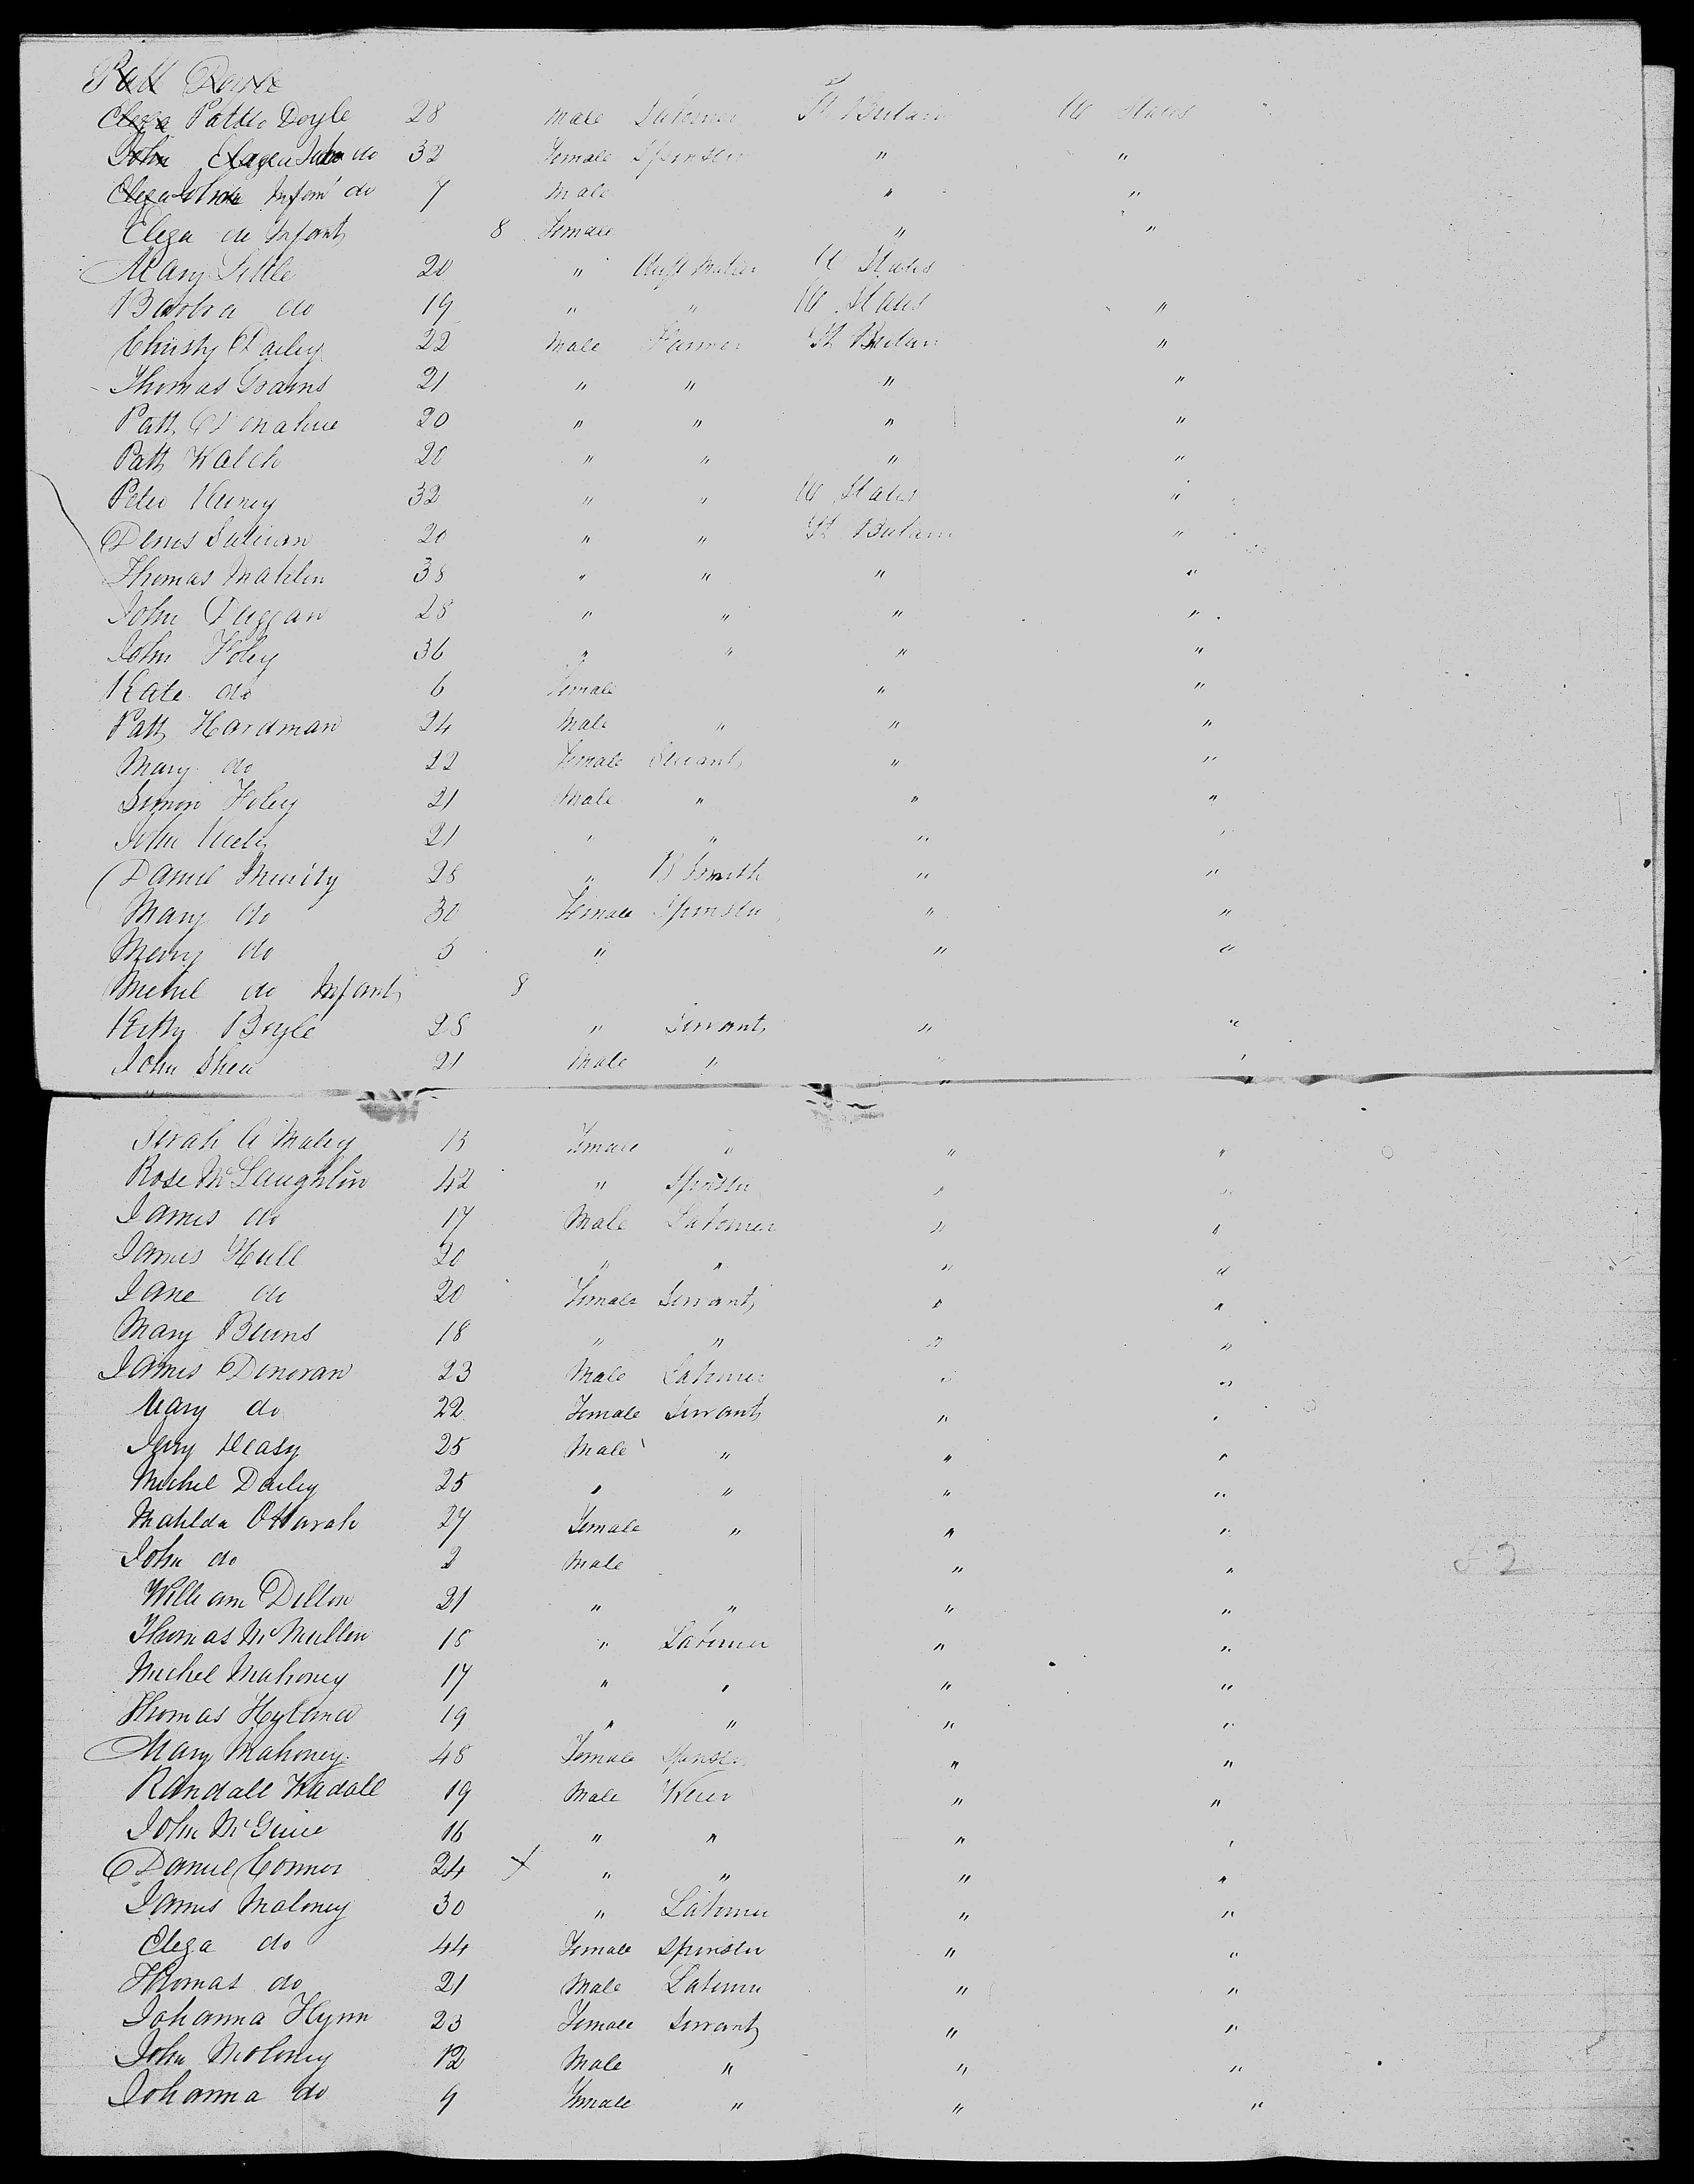 Patt Doyle
Eleza Patk Doyle 28 Male Labourer Gt Britain U States
John Eleza do 32 Female Spinster " "
Eleza John Infant do 7 Male " "
Eleza do Infant 8 Female " "
Mary Little 20 " U States
Barbra do 19 " " U States "
Christy Dailey 22 Male Farmer Gt Britain "
Thomas 21 " " " "
Patt Donahue 20 " " " "
Patt Walch 20 " " " "
Peter 32 " " U States "
Denis Sulivan 20 " " Gt Britain "
Thomas 38 " " " "
John Duggan 28 " " " "
John Foley 36 " " " "
Kate do 6 Female " "
Patt Hardman 24 Male " " "
Mary do 22 Female Servant " "
Simon Foley 21 Male " " "
John 21 " " " "
Daniel 28 " B Smith " "
Mary do 30 Female Spinster " "
Mary do 5 " " "
Michel do Infant 8
Kitty Boyle 28 " Servant " "
John Shea 21 Male " " "
Sarah A Maley 13 Female " " "
Rose McLaughlin 42 " Spinster " "
James do 17 Male Labourer " "
James Hull 20 " " " "
Jane do 20 Female Servant " "
Mary Burns 18 " " " "
James Donovan 23 Male Labourer " "
Mary do 22 Female Servant " "
Jery Deasy 25 Male " " "
Michel Dailey 25 " " " "
Matilda OHarah 27 Female " " "
John do 2 Male " "
William Dillon 21 " " " "
Thomas McMullen 18 " Labourer " "
Michel Mahoney 17 " " " "
Thomas 19 " " " "
Mary Mahoney 48 Female Spinster " "
Randall 19 Male " "
John McGuire 16 " " " "
Daniel Connor 24 x " " " "
James Maloney 30 " Labourer " "
Eleza do 44 Female Spinster " "
Thomas do 21 Male Labourer " "
Johanna Flynn 23 Female Servant " "
John Moloney 12 Male " " "
Johanna do 9 Female " " "